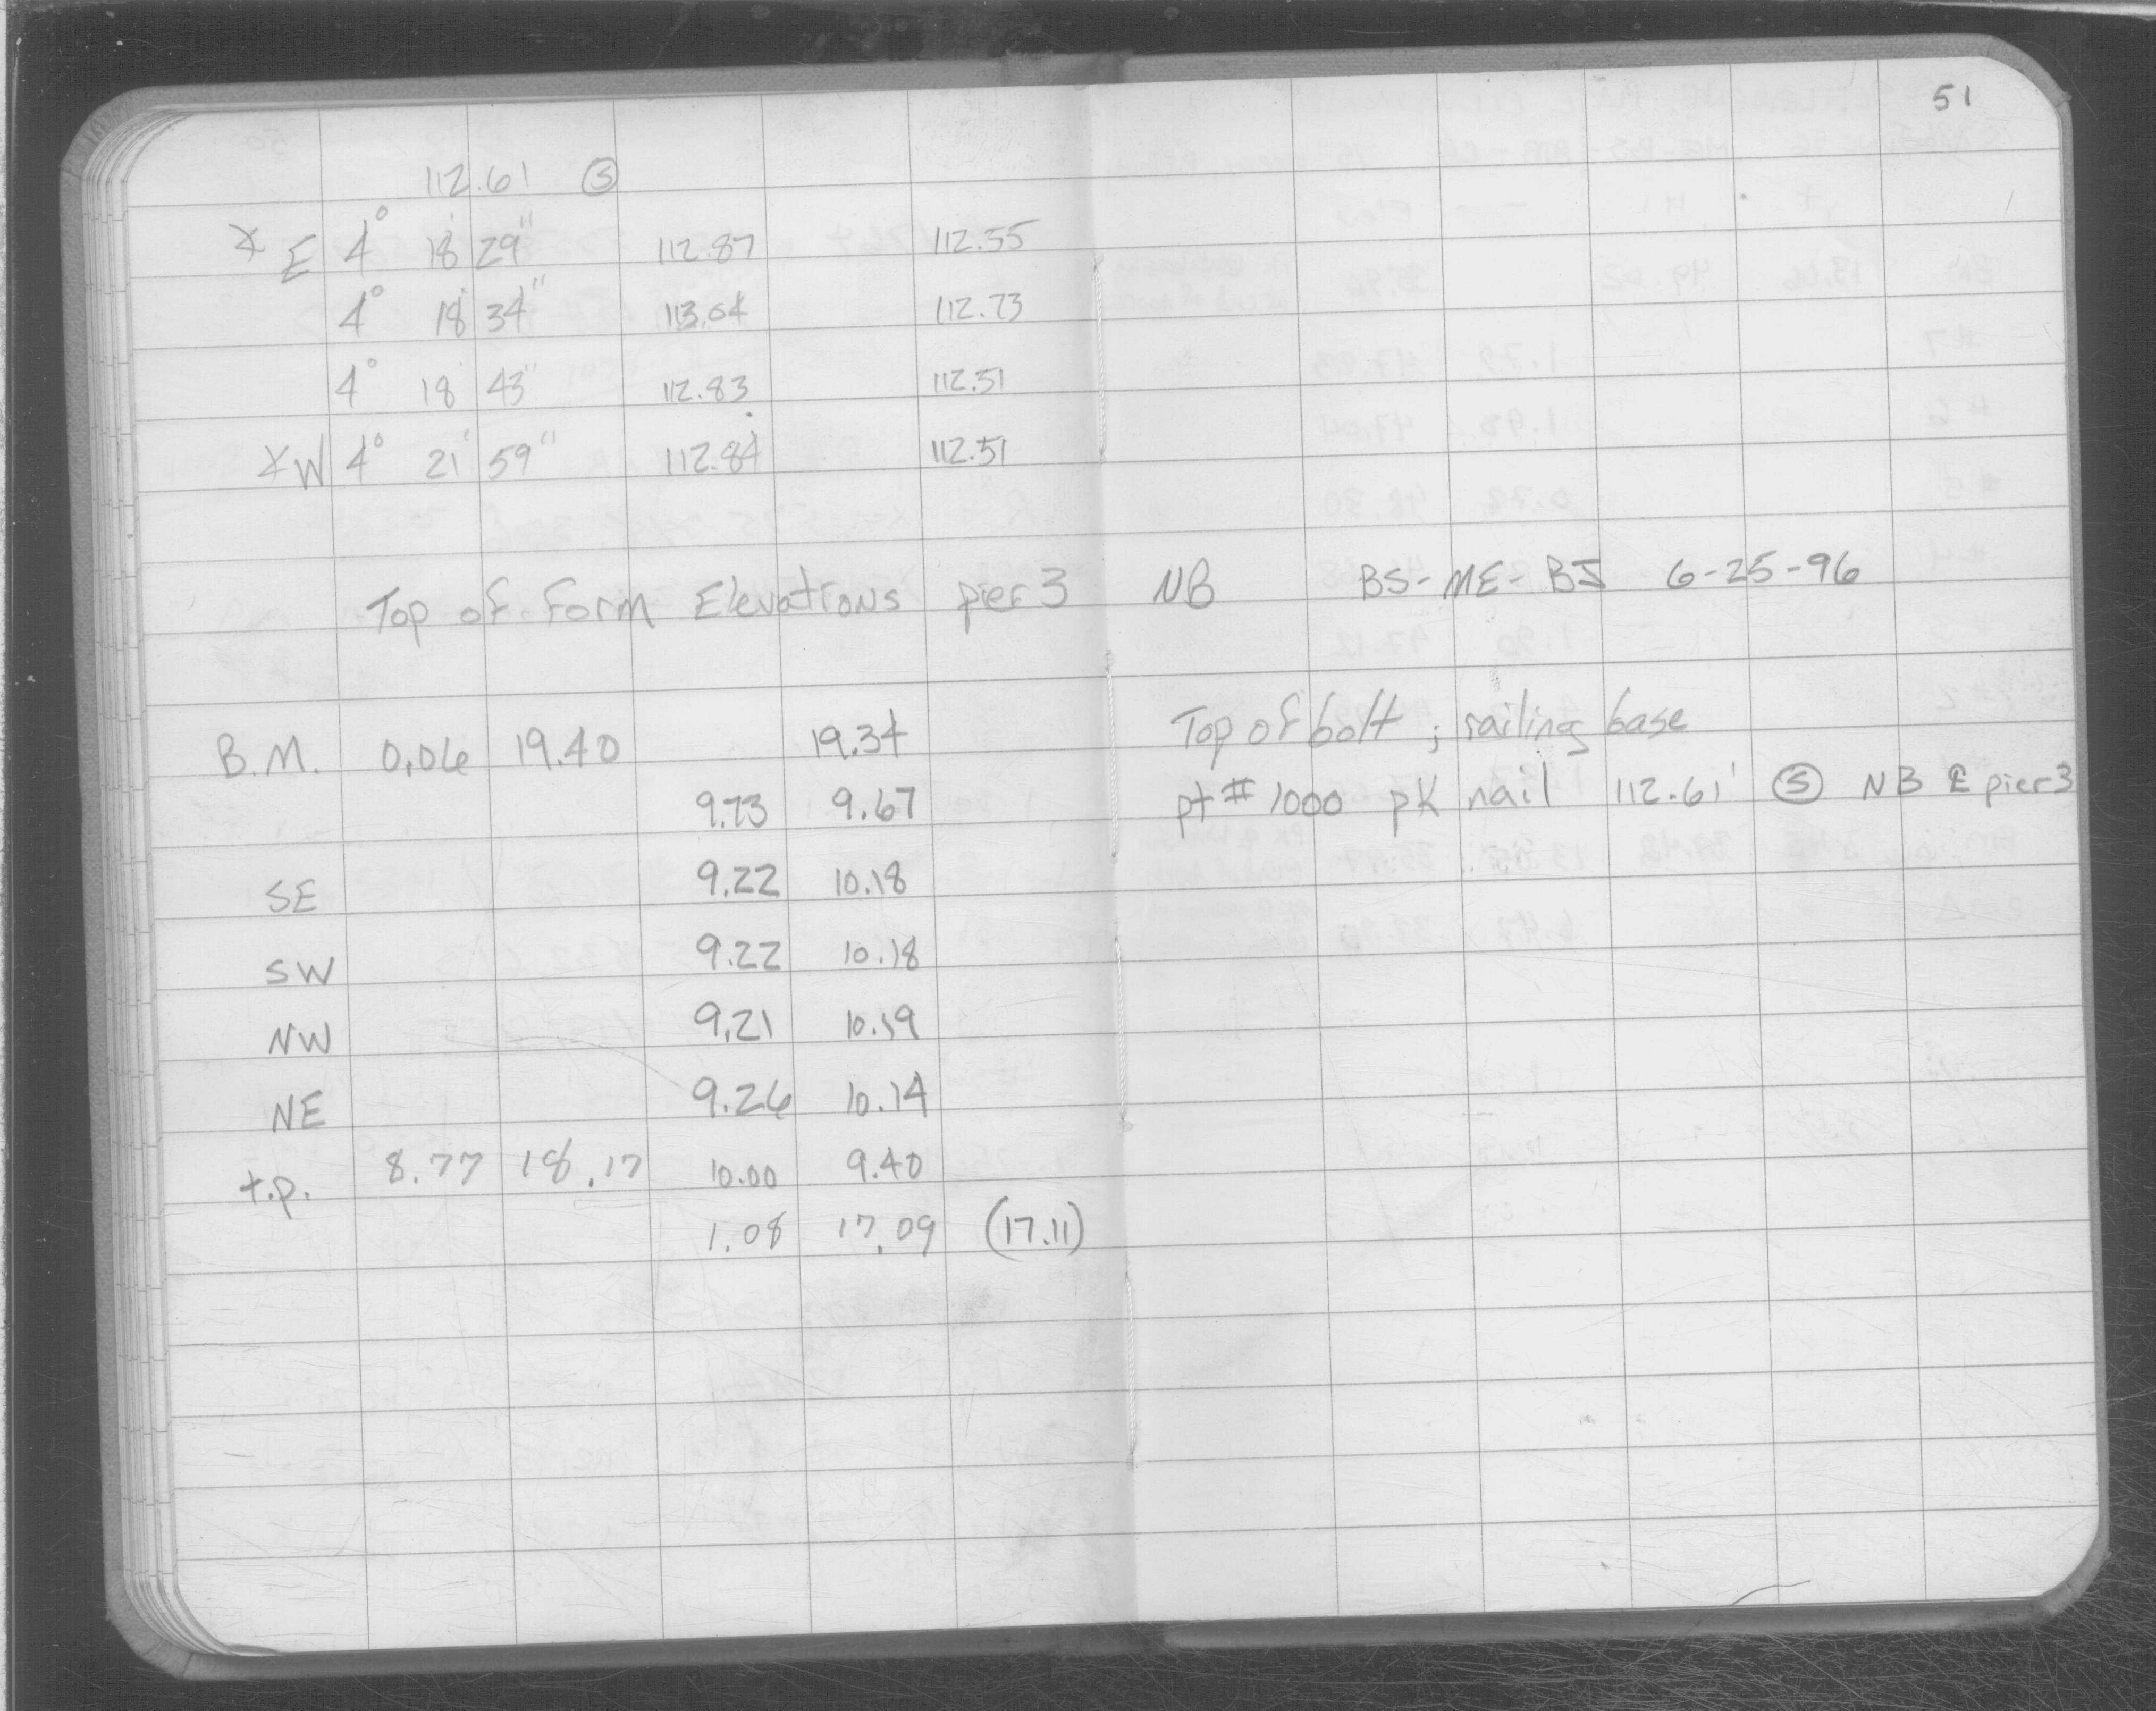 51
112.61 Ⓢ
∡ E 4° 18' 29" 112.87 112.55
4° 18' 34" 113.04 112.73
4° 18' 43" 112.83 112.51
∡W 4° 21' 59" 112.84 112.51
Top of Form Elevations pier 3 NB BS-ME-BJ 6-25-96
B.M. 0.06 19.40 19.34 Top of bolt ; railing base
9.73 9.67 pt # 1000 pk nail 112.61' Ⓢ NB ℄ pier 3
SE 9.22 10.18
SW 9.22 10.18
NW 9.21 10.19
NE 9.26 10.14
t.p. 8.77 18.17 10.00 9.40
1.08 17.09 (17.11)